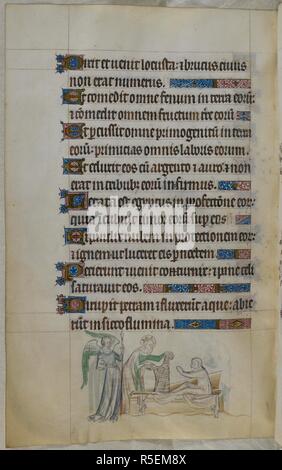 Dixit et venit locusta: et brucus cuius
non erat numerus.
Et comedit omne fenum in terra eorum:
et comedit omnem fructum terre eorum
Et percussit omne primogenitum in terra
eorum: primicias omnis laboris eorum.
Et eduxit eos cum argento et auro: et non
erat in tribubus eorum infirmus.
Letata est egyptus in profectione eorum:
quia incubuit timor eorum super eos
Expandit nubem in protectionem eorum
et ignem ut luceret eis per noctem
Petierunt et venit coturnix: et pane celi
saturavit eos.
Dirupit petram et fluxerunt aque: abie
runt in sicco flumina.
alamy
Image ID: R5EM8X
www.alamy.com